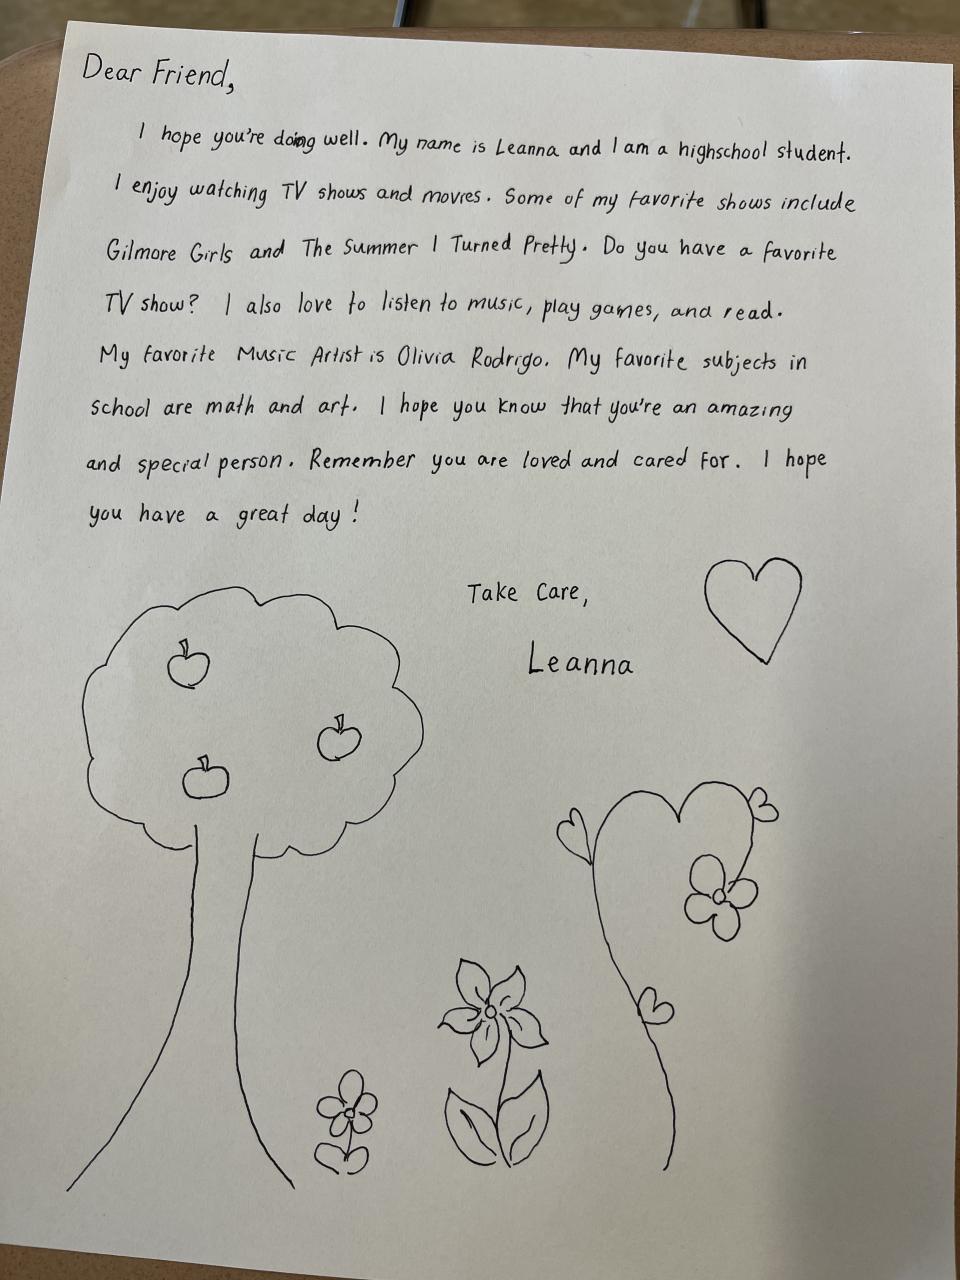 Dear Friend,
I hope you're doing well. My name is Leanna and I am a highschool student.
I enjoy watching TV shows and movies. Some of my favorite shows include
Gilmore Girls and The Summer I Turned Pretty. Do you have a favorite
TV show? I also love to listen to music, play games, and read.
My favorite Music Artist is Olivia Rodrigo. My favorite subjects in
school are math and art. I hope you know that you're an amazing
and special person. Remember you are loved and cared for. I hope
you have a great day!
Take Care,
Leanna